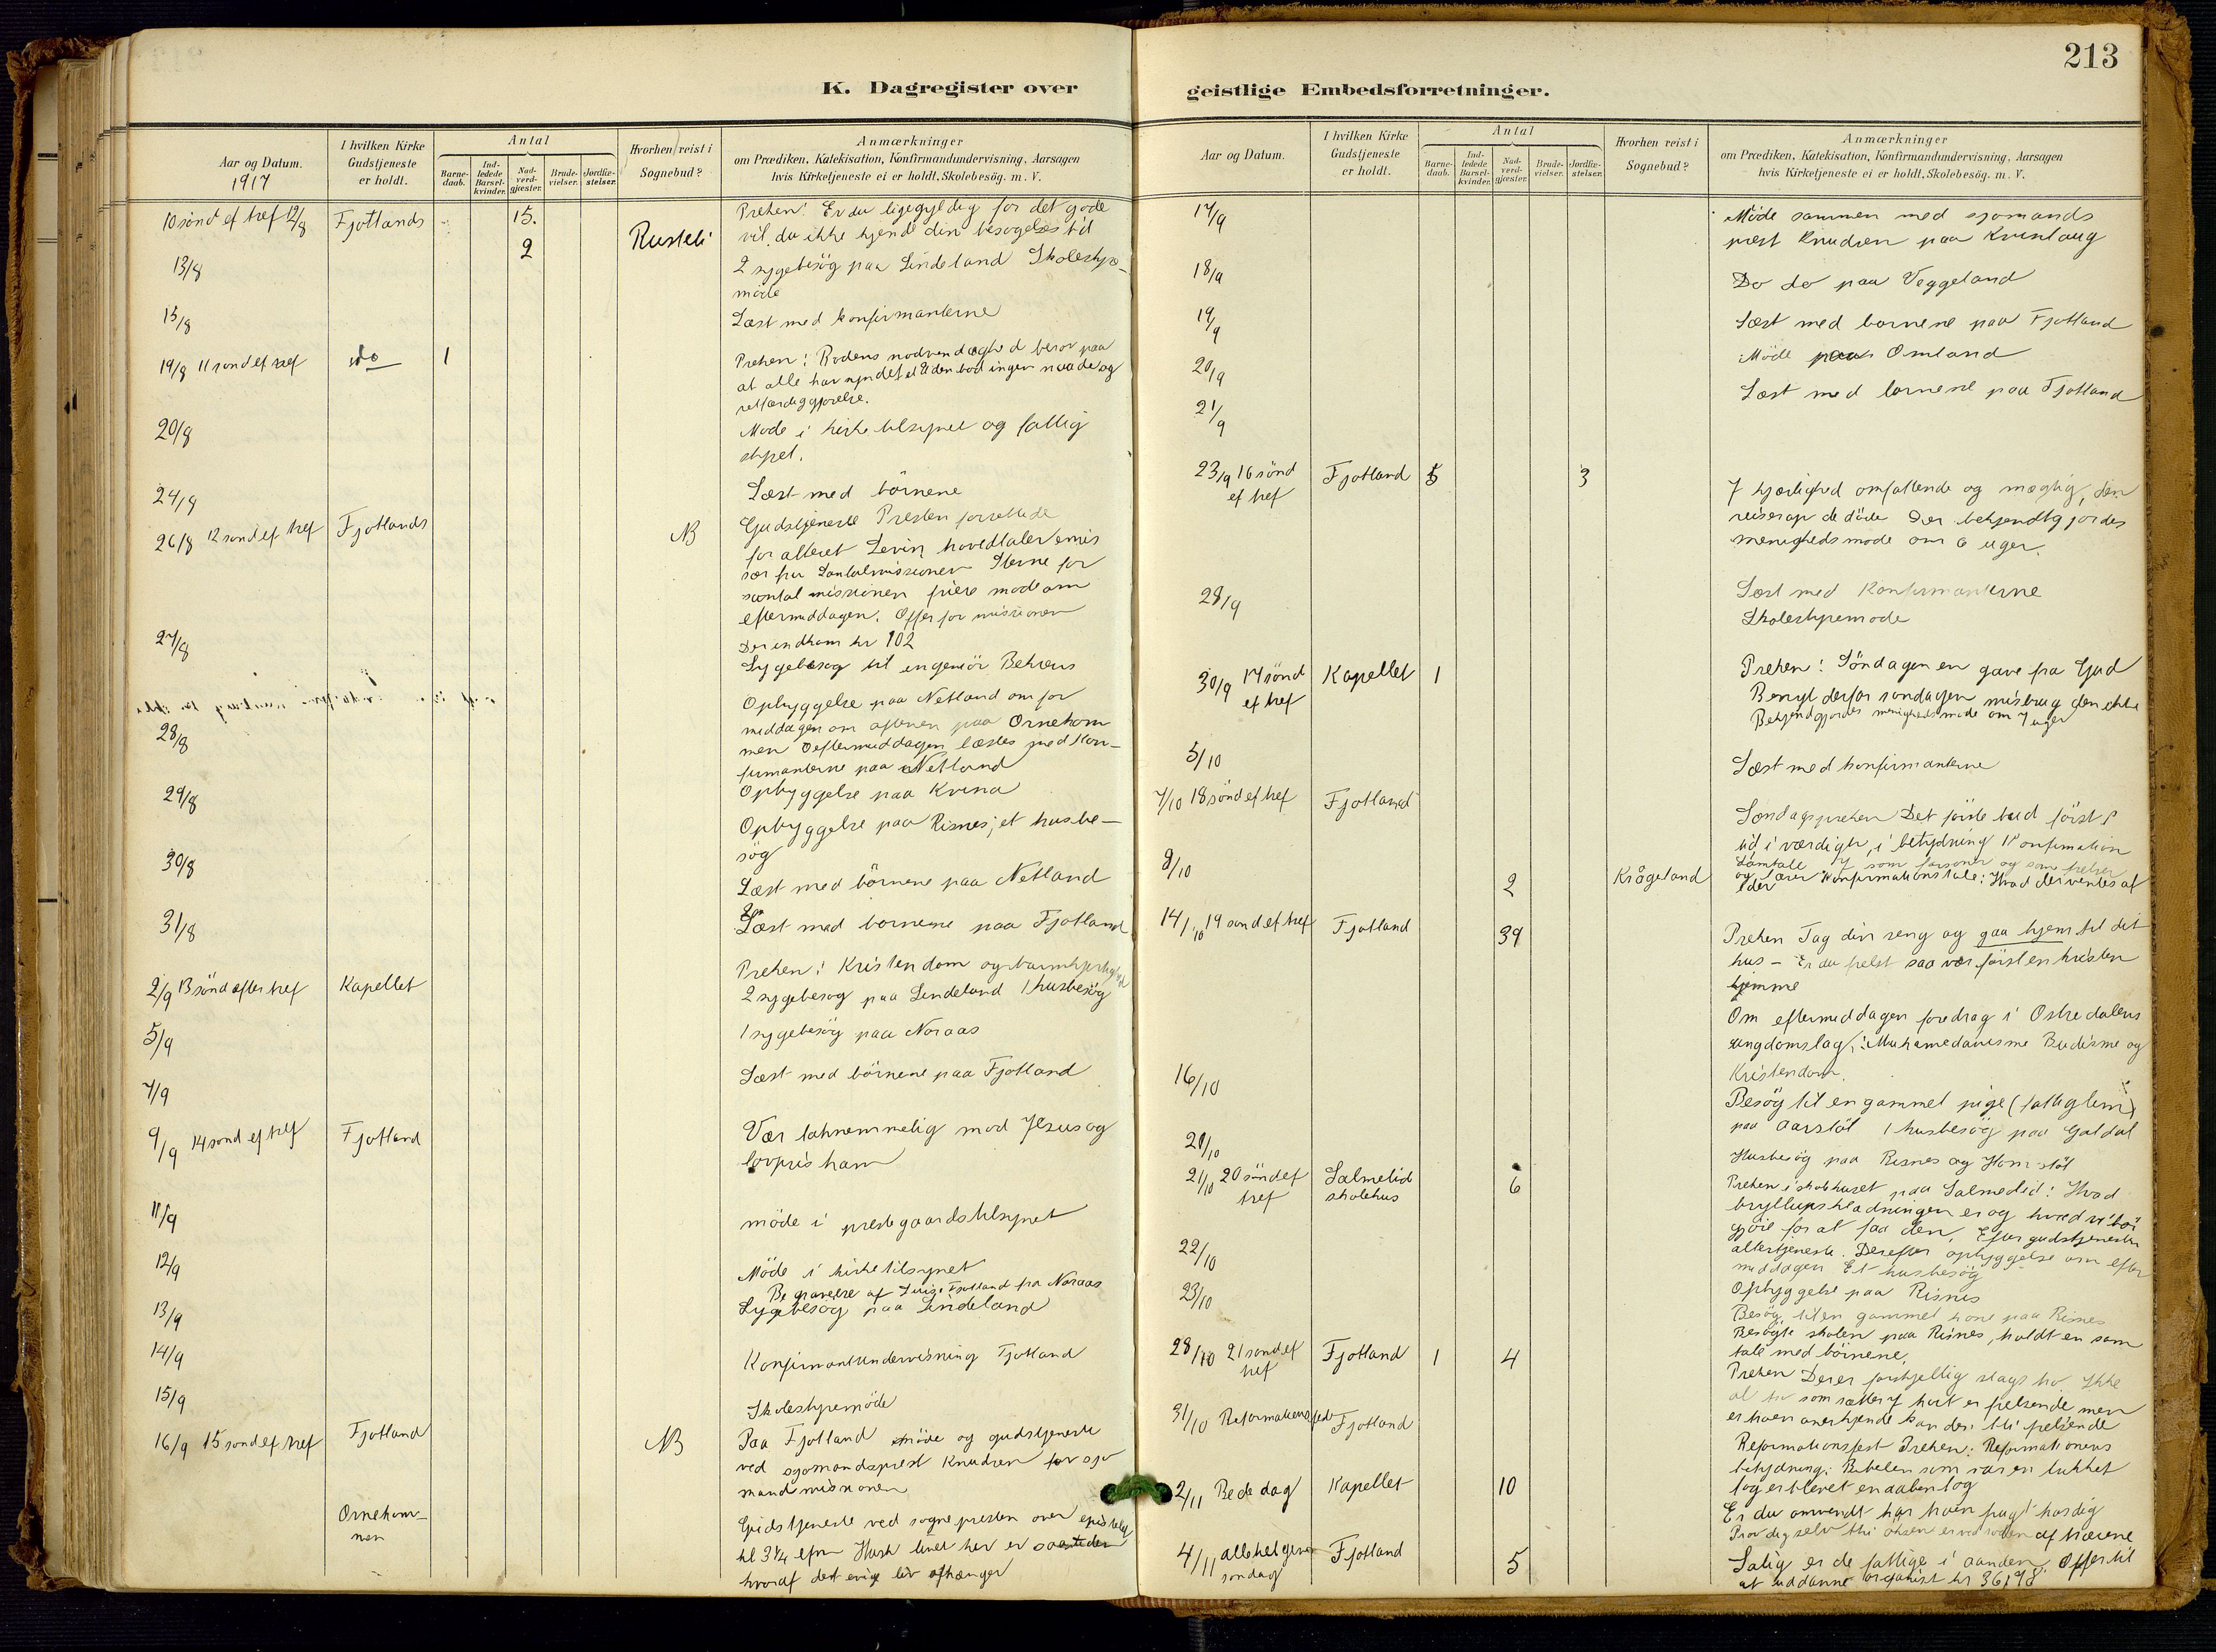 213
K. Dagregister over
geistlige Embedsforretninger.
Aar og Datum.
1917
I hvilken Kirke
Gudstjeneste
er holdt.
Antal
Barne-
daab.
Ind-
ledede
Barsel-
kvinder.
Nad-
verd-
gjæster.
Brude-
vielser.
Jordfæ-
stelser.
Hvorhen reist i
Sognebud?
Anmærkninger
om Prædiken, Katekisation, Konfirmandundervisning, Aarsagen
hvis Kirketjeneste ei er holdt, Skolebesög. m. V.
10 sönd ef tref 12/8 Fjotlands 15.
Preken: Er du ligegyldig for det gode
vil du ikke kjende din besøgelses tid
13/8 2 Rusteli
2 sygebesög paa Lindeland Skolestyre-
möde
15/8
Læst med konfirmanterne
19/8 11 sond ef tref do 1
Preken: Bodens nødvendighed beror paa
at alle har syndet Uden bod ingen naade og
retfærdiggjorelse.
20/8
Mode i kirketilsynet og fattig
styret.
24/8
Læst med börnene
26/8 12 sond ef tref Fjotlands NB
Gudstjeneste Presten forrettede
for alteret Levin hovedtaler emis
sær fra Santalmissionen Stevne for
santalmissionen friere mode om
eftermiddagen. Offer for missionen
Der indkom kr 102
27/8
Sygebesog til ingeniör Behrens
28/8
Opbyggelse paa Netland om for
middagen om aftenen paa Ornekom
men Oeftermiddagen læstes med Kon-
firmanterne paa Netland
29/8
Opbyggelse paa Kvina
Opbyggelse paa Risnes; et husbe-
sög
30/8
Læst med börnene paa Netland
31/8
Læst med bornene paa Fjotland
2/9 13 sönd efter tref Kapellet
Preken: Kristendom og barmhjertighed
2 sygebesog paa Lindeland 1 husbesög
5/9
1 sygebesög paa Noraas
7/9
Læst med börnene paa Fjotland
9/9 14 sond ef tref Fjotland
Vær taknemmelig mod Jesus og
lovpris ham
11/9
möde i prestegaardstilsynet
12/9
Möde i kirketilsynet
Begravelse af Fjotland fra Noraas
13/9
Sygebesög paa Lindeland
14/9
Konfirmantundervisning Fjotland
15/9
Skolestyremöde
16/9 15 sond ef tref Fjotland NB
Paa Fjotland möde og gudstjeneste
ved sjomandsprest Knudsen for sjo
mandsmissionen
Ornekom-
men
Gudstjeneste ved sognepresten over
kl 3 1/4 efm Husk livet her er
hvoraf det evige liv afhænger
Aar og Datum.
I hvilken Kirke
Gudstjeneste
er holdt.
Antal
Barne-
daab.
Ind-
ledede
Barsel-
kvinder.
Nad-
verd-
gjæster.
Brude-
vielser.
Jordfæ-
stelser.
Hvorhen reist i
Sognebud?
Anmærkninger
om Prædiken, Katekisation, Konfirmandundervisning, Aarsagen
hvis Kirketjeneste ei er holdt, Skolebesög. m. V.
17/9
Möde sammen med sjomands
prest Knudsen paa Kvinlaug
18/9
Do do paa Veggeland
19/9
Læst med bornene paa Fjotland
20/9
Möde paa Omland
21/9
Læst med bornene paa Fjotland
23/9 16 sönd
ef tref Fjotland 5 3
J kjærlighed omfattende og mægtig, den
reiser op de döde Der bekjendtgjordes
menighedsmode om 6 uger.
28/9
Læst med Konfirmanterne
Skolestyremode
30/9 17 sönd
ef tref Kapellet 1
Preken: Söndagen en gave fra Gud
Benyt derfor sondagen misbrug den ikke
Bekjendgjordes menighedsmöde om 7 uger
5/10
Læst med konfirmanterne
7/10 18 sönd ef tref Fjotland
Sondagspreken Det förste bud först i
tid i værdighed, i betydning Konfirmation
Samtale J som forsoner og som frelser
og lærer Konfirmationstale: Hvad der ventes af
eder
8/10 2 Krågeland
14/10 19 sond ef tref Fjotland 39
Preken Tag din seng og gaa hjem til dit
hus - Er du frelst saa vær först en kristen
hjemme
Om eftermiddagen foredrag i Ostre dalens
ungdomslag: Muhamedanisme Budisme og
Kristendom.
16/10
Besög til en gammel pige (fattiglem)
paa Aarstöl 1 husbesög paa Galdal
20/10
Husbesög paa Risnes og Homstöl
21/10 20 sönd ef
tref Salmelid
skolehus 6
Preken i skolehuset paa Salmelid: Hvad
bryllupsklædningen er og hvad vi bör
gjöre for at faa den. Efter gudstjenesten
altertjeneste. Derefter opbyggelse om efter
middagen Et husbesög
22/10
Opbyggelse paa Risnes
23/10
Besög til en gammel kone paa Risnes
Besögte skolen paa Risnes, holdt en sam
tale med börnene.
28/10 21 sond ef
tref Fjotland 1 4
Preken Der er forskjellig slags tro. Ikke
al tro som sætter J höit er frelsende men
er troen anerkjende kan den bli frelsende
31/10 Reformationsfest Fjotland
Reformationsfest Preken: Reformationens
betydning: Bibelen som var en lukket
bog er blevet en aaben bog
2/11 Bededag Kapellet 10
Er du omvendt har troen frugt hos dig
Prov dig selv thi öksen er ved roden af træerne
4/11 allehelgens
sondag Fjotland 5
Salig er de fattige i aanden. Offer til
at uddanne organist kr 36,78